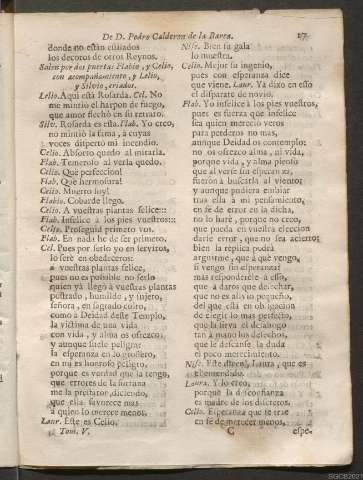 De D. Pedro Calderon de la Barca. 17
donde no estàn casados
los decoros de otros Reynos.
Salen por dos puertas Flabio, y Celio,
con acompañamiento, y Lelio,
y Silvio, criados.
Lelio. Aqui està Rosarda. Cel. No
me mintiò el harpon de fuego,
que amor flechò en su retrato.
Silv. Rosarda es esta. Flab. Yo creo,
no mintiò la fama, à cuyas
voces dispertò mi incendio.
Celio. Absorto quedo al mirarla.
Flab. Temerolo al verla quedo.
Celio. Què perfeccion!
Flab. Què hermosura!
Celio. Muerto soy!
Flabio. Cobarde llego.
Celio. A vuestras plantas felice::
Flab. Infelice à los pies vuestros::
Celio. Proseguid primero vos.
Flab. En nada he de ser primero.
Cel. Pues por serlo yo en serviros,
lo serè en obedeceros:
à vuestras plantas felice,
pues no es possible no serlo
quien yà llegò à vuestras plantas
postrado, humilde, y sujeto,
señora, en sagrado culto,
como à Deidad deste Templo,
la victima de una vida
con vida, y alma os ofrezco:
y aunque suele peligrar
la esperanza en lo grossero,
en mi es honroso peligro,
porque es verdad que la tengo,
que errores de la fortuna
me la prestaron, diciendo,
que ella favorece mas
à quien lo merece menos.
Laur. Este es Celio.
Tom. V.
Nise. Bien su gala
lo muestra.
Celio. Mejor su ingenio,
pues con esperanza dice
que viene. Laur. Yà dixo en esso
el disparate de novio.
Flab. Yo infelice à los pies vuestros,
pues es fuerza que infelice
sea quien mereciò veros
para perderos no mas,
aunque Deidad os contemplo:
no os ofrezco alma, ni vida,
porque vida, y alma pienso
que al verse sin esperanza,
fueron à buscarla al viento;
y aunque pudiera enlazar
tras ella à mi pensamiento,
en fè de error en la dicha,
no lo harè, porque no creo,
que pueda en vuestra eleccion
darse error, que no sea acierto:
bien la rèplica podrà
arguirme, que à què vengo,
si vengo sin esperanza?
mas responderèle à esso,
que à daros que desechar,
que no es alivio pequeño,
del que està en obligacion
de elegir lo mas perfecto,
que la sirva el desahogo
tan à mano los desechos,
que le descanse la duda
el poco merecimiento.
Nise. Este es, Laura, que es
el entendido.
Laura. Y lo creo,
porque la desconfianza
es madre de los discretos.
Celio. Esperanza que se trae
en fè de merecer menos,
C espe-
SGCB2021